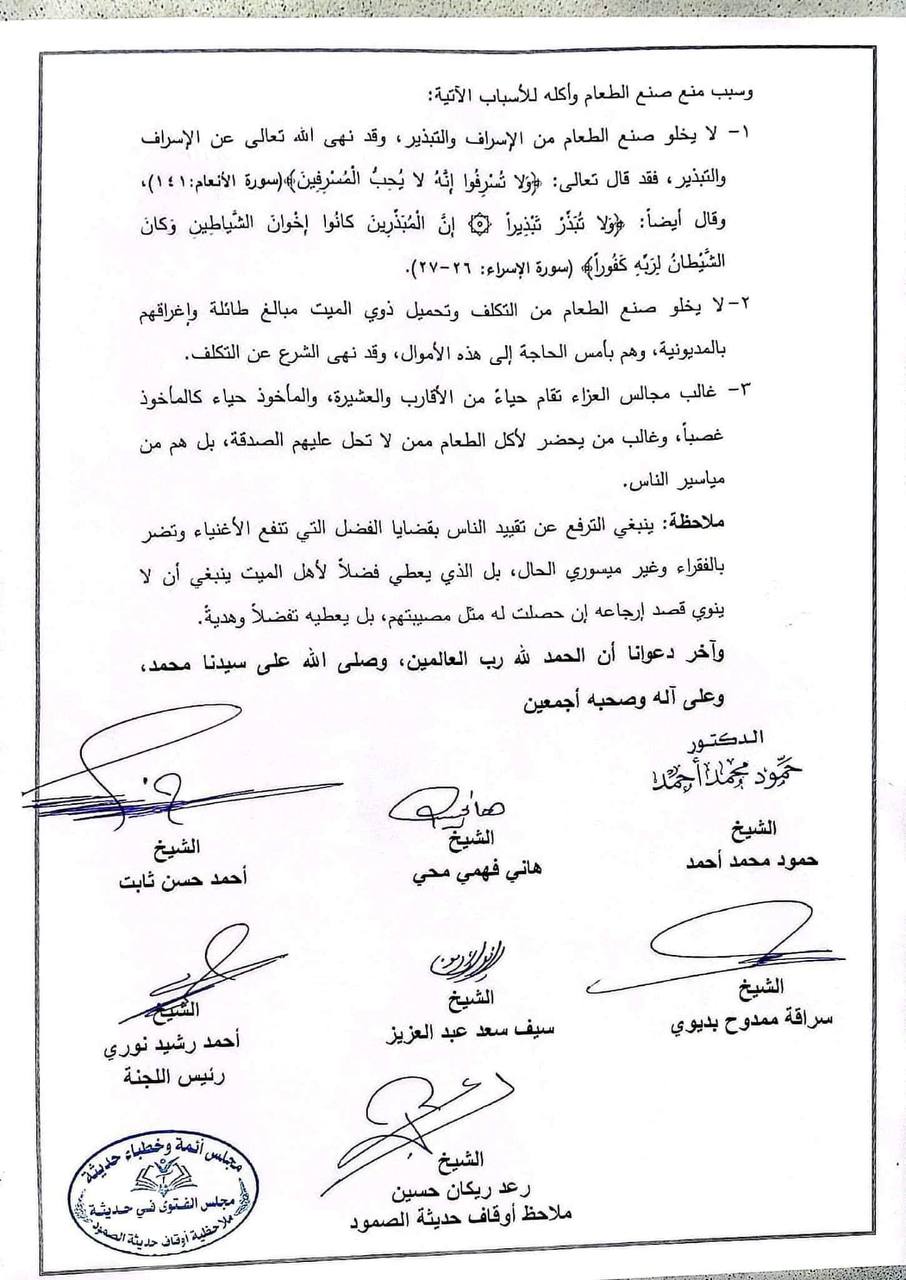 وسبب منع صنع الطعام وأكله للأسباب الآتية:
١- لا يخلو صنع الطعام من الإسراف والتبذير، وقد نهى الله تعالى عن الإسراف
والتبذير، فقد قال تعالى: ﴿وَلا تُسْرِفُوا إِنَّهُ لا يُحِبُّ الْمُسْرِفِينَ﴾(سورة الأنعام:١٤١)،
وقال أيضاً: ﴿وَلا تُبَذِّرْ تَبْذِيراً ۞ إِنَّ الْمُبَذِّرِينَ كانُوا إِخْوانَ الشَّياطِينِ وَكانَ
الشَّيْطانُ لِرَبِّهِ كَفُوراً﴾ (سورة الإسراء: ٢٦-٢٧).
٢- لا يخلو صنع الطعام من التكلف وتحميل ذوي الميت مبالغ طائلة وإغراقهم
بالمديونية، وهم بأمس الحاجة إلى هذه الأموال، وقد نهى الشرع عن التكلف.
٣- غالب مجالس العزاء تقام حياءً من الأقارب والعشيرة، والمأخوذ حياء كالمأخوذ
غصباً، وغالب من يحضر لأكل الطعام ممن لا تحل عليهم الصدقة، بل هم من
مياسير الناس.
ملاحظة: ينبغي الترفع عن تقييد الناس بقضايا الفضل التي تنفع الأغنياء وتضر
بالفقراء وغير ميسوري الحال، بل الذي يعطي فضلاً لأهل الميت ينبغي أن لا
ينوي قصد إرجاعه إن حصلت له مثل مصيبتهم، بل يعطيه تفضلاً وهديةً.
وآخر دعوانا أن الحمد لله رب العالمين، وصلى الله على سيدنا محمد،
وعلى آله وصحبه أجمعين
الدكتور
حمود محمد أحمد
الشيخ
حمود محمد أحمد
الشيخ
هاني فهمي محي
الشيخ
أحمد حسن ثابت
الشيخ
سراقة ممدوح بديوي
الشيخ
سيف سعد عبد العزيز
الشيخ
أحمد رشيد نوري
رئيس اللجنة
الشيخ
رعد ريكان حسين
ملاحظ أوقاف حديثة الصمود
مجلس أئمة وخطباء حديثة
مجلس الفتوى في حديثة
ملاحظية أوقاف حديثة الصمود